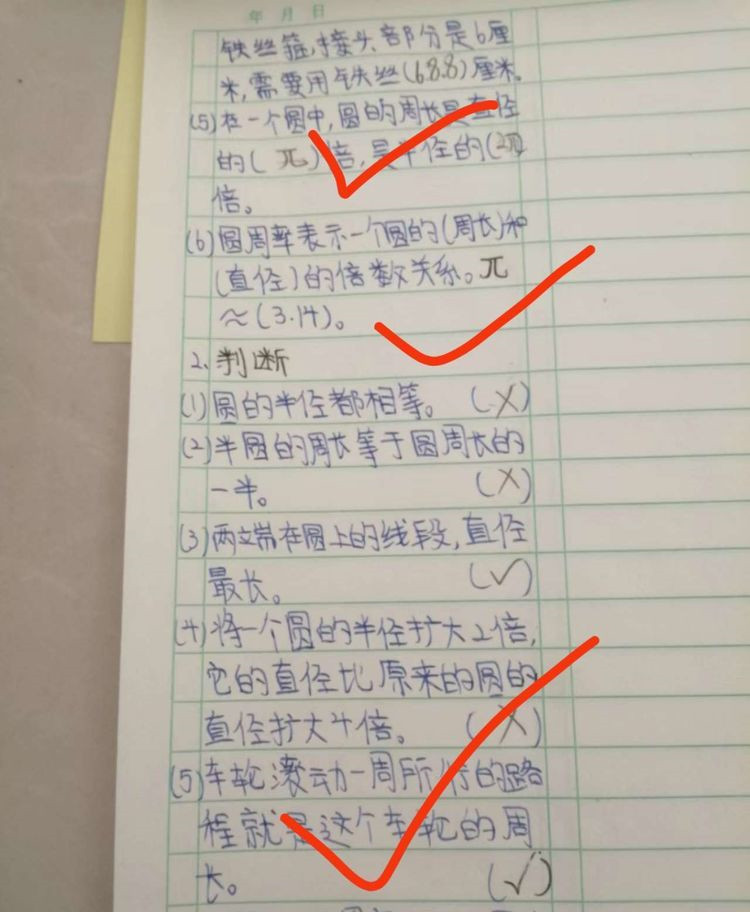 年 月 日
铁丝箍,接头部分是6厘
米,需要用铁丝(68.8)厘米。
(5)在一个圆中,圆的周长是直径
的(π)倍,是半径的(2π)
倍。
(6)圆周率表示一个圆的(周长)和
(直径)的倍数关系。π
≈(3.14)。
2.判断
(1)圆的半径都相等。 (×)
(2)半圆的周长等于圆周长的
一半。 (×)
(3)两端在圆上的线段,直径
最长。 (√)
(4)将一个圆的半径扩大2倍,
它的直径比原来的圆的
直径扩大4倍。 (×)
(5)车轮滚动一周所行的路
程就是这个车轮的周
长。 (√)